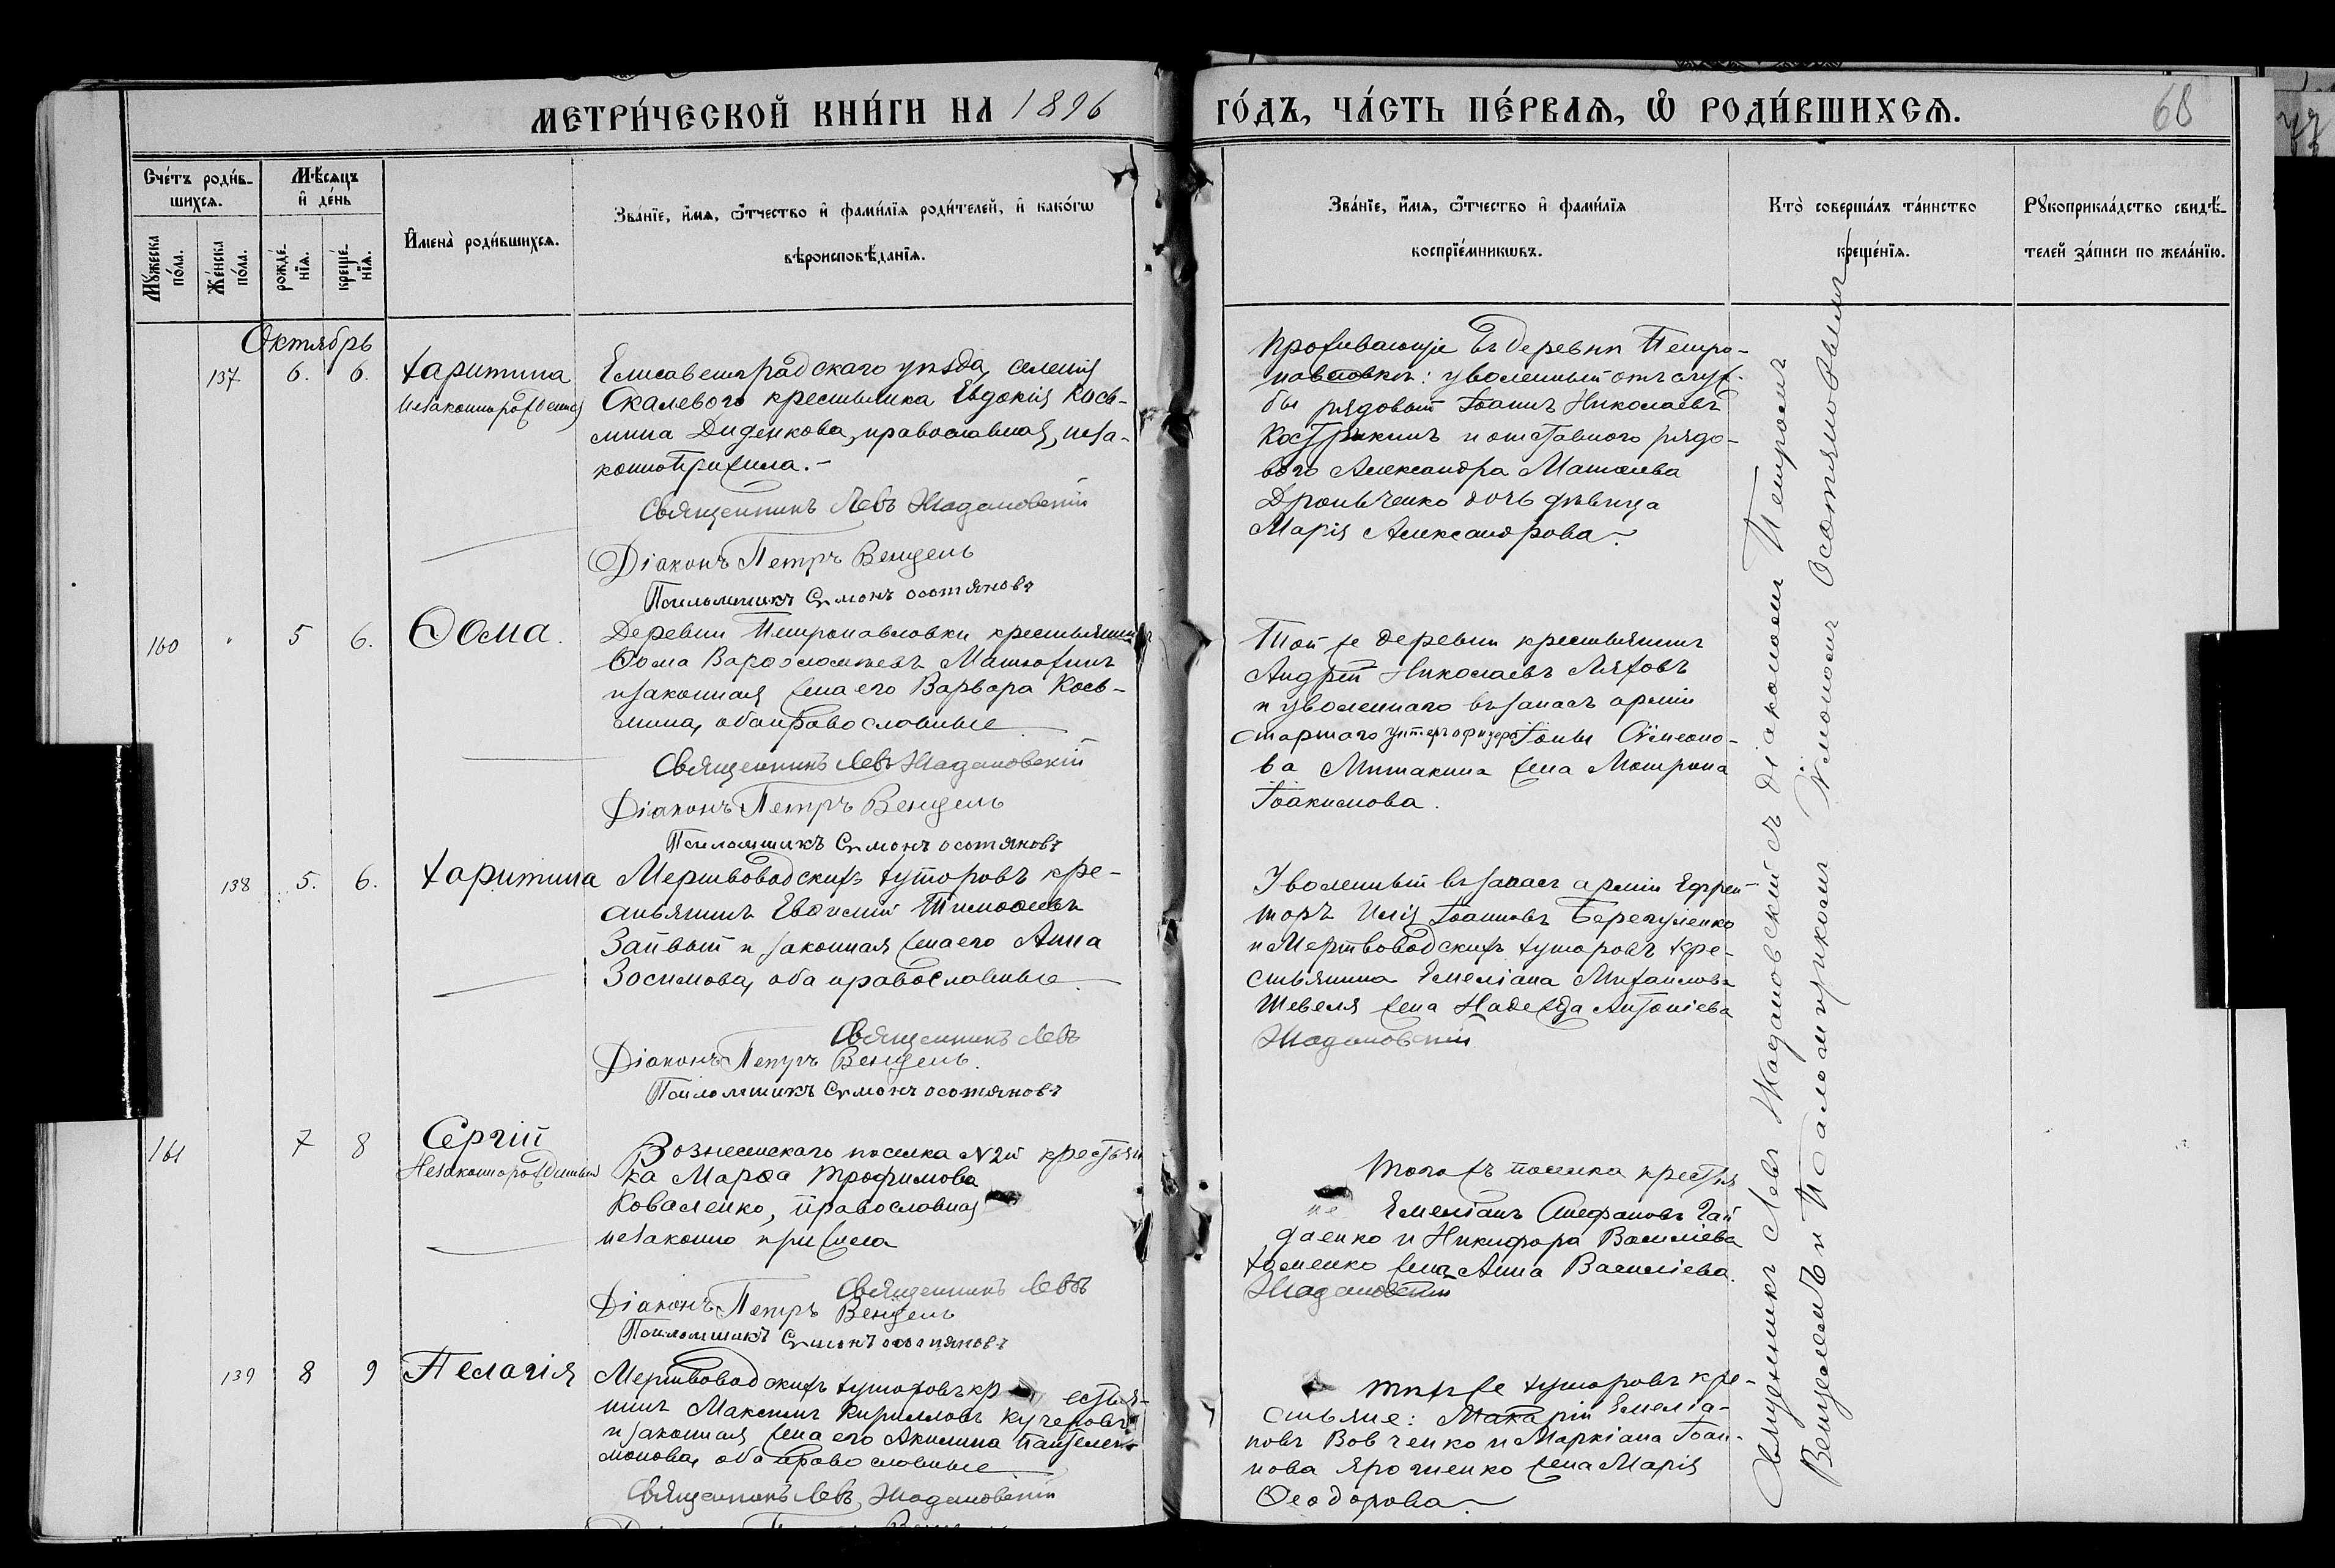 МЕТРИ́ЧЕСКОЙ КНИ́ГИ НА 1896
ГО́ДЪ, ЧА́СТЬ ПЕ́РВАѦ, Ѡ҆ РОДИ́ВШИХСѦ.
68
Сче́тъ роди́в-
шихсѧ.
Мѣ́сѧцъ
и҆ де́нь
Мꙋ́жеска
по́ла.
Же́нска
по́ла.
рожде́-
нїѧ.
креще́-
нїѧ.
И҆мена̀ роди́вшихсѧ.
Зва́нїе, и҆́мѧ, ѻ҆́тчество и҆ фами́лїѧ роди́телей, и҆ како́гѡ
вѣроисповѣ́данїѧ.
Зва́нїе, и҆́мѧ, ѻ҆́тчество и҆ фами́лїѧ
воспрїе́мникѡвъ.
Кто̀ соверша́лъ та́инство
креще́нїѧ.
Рꙋкоприкла́дство свидѣ́-
телей за́писи по жела́нїю.
Октябрь
137 6. 6. Харитина
Незаконнорожденная
Елисаветградскаго уѣзда, селенія
Скалевого крестьянка Евдокія Кось-
мина Диденкова, православная, неза-
конно прижила.-
Священникъ Левъ Жадановскій
Діаконъ Петръ Венцель
Псаломщикъ Симонъ Осотяновъ
Проживающіе въ деревнѣ Петро-
павловкѣ: уволенный отъ служ-
бы рядовый Іоаннъ Николаевъ
Кострикинъ и отставного рядо-
вого Александра Матѳеева
Дроньченко дочь дѣвица
Марія Александрова.
160 " 5 6. Ѳома.
Деревни Петропавловки крестьянинъ
Ѳома Варѳоломеевъ Матюхинъ
и законная жена его Варвара Кось-
мина, оба православные
Священникъ Левъ Жадановскій
Діаконъ Петръ Венцель
Псаломщикъ Симонъ Осотяновъ
Той же деревни крестьянинъ
Андрей Николаевъ Ляховъ
и уволеннаго въ запасъ арміи
старшаго унтеръ офицера Іоны Сѵмеоно-
ва Митакина жена Матрона
Іоакимова.
138 5. 6. Харитина
Мертвоводскихъ хуторовъ кре-
стьянинъ Евѳимій Тимоѳеевъ
Заивый и законная жена его Анна
Зосимова, оба православные
Священникъ Левъ
Діаконъ Петръ Венцель.
Псаломщикъ Симонъ Осотяновъ
Уволенный въ запасъ арміи Ефрей-
торъ Илія Іоанновъ Берегуленко
и Мертвоводскихъ хуторовъ кре-
стьянина Емеліана Михаилова
Шевеля жена Надежда Антоніева
Жадановскій
161 7 8 Сергій
Незаконнорожденный
Вознесенскаго поселка N 2й крестьян
ка Марѳа Трофимова
Коваленко, православная
незаконно прижила
Священникъ Левъ
Діаконъ Петръ Венцель
Псаломщикъ Симонъ Осотяновъ
Того жъ поселка крестья
не Емеліанъ Стефановъ Гай
даенко и Никифора Василіева
Хоменко жена Анна Василіева.
Жадановскій
139 8 9 Пелагія
Мертвоводскихъ хуторовъ кр естья-
нинъ Максимъ Кирилловъ Кучеровъ
и законная жена его Акилина Пантелей-
монова, оба православные
Священникъ Левъ Жадановскій
Тѣхъ же хуторовъ кре-
стьяне: Макарій Емеліа-
новъ Вовченко и Маркіана Іоан-
нова Ярошенко жена Марія
Ѳеодорова.
Священникъ Левъ Жадановскій съ діакономъ Петромъ
Венцелемъ и Псаломщикомъ Симономъ Осотяновымъ